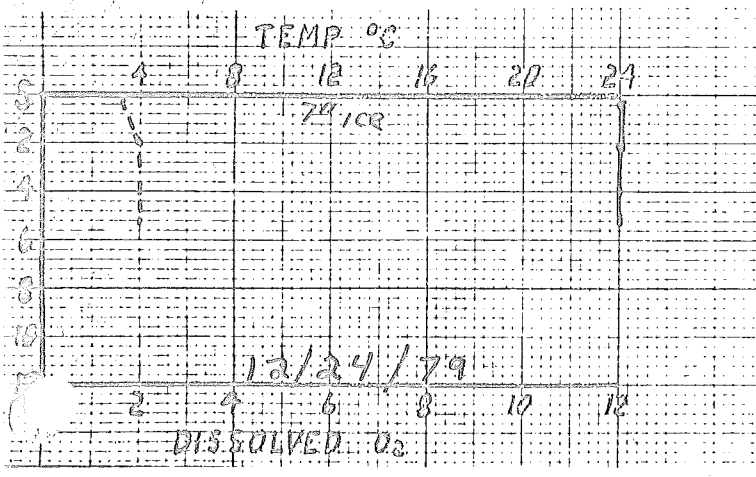 TEMP °C
4 8 12 16 20 24
0
7" ICE
2
4
6
8
10
12/24/79
2 4 6 8 10 12
DISSOLVED O₂